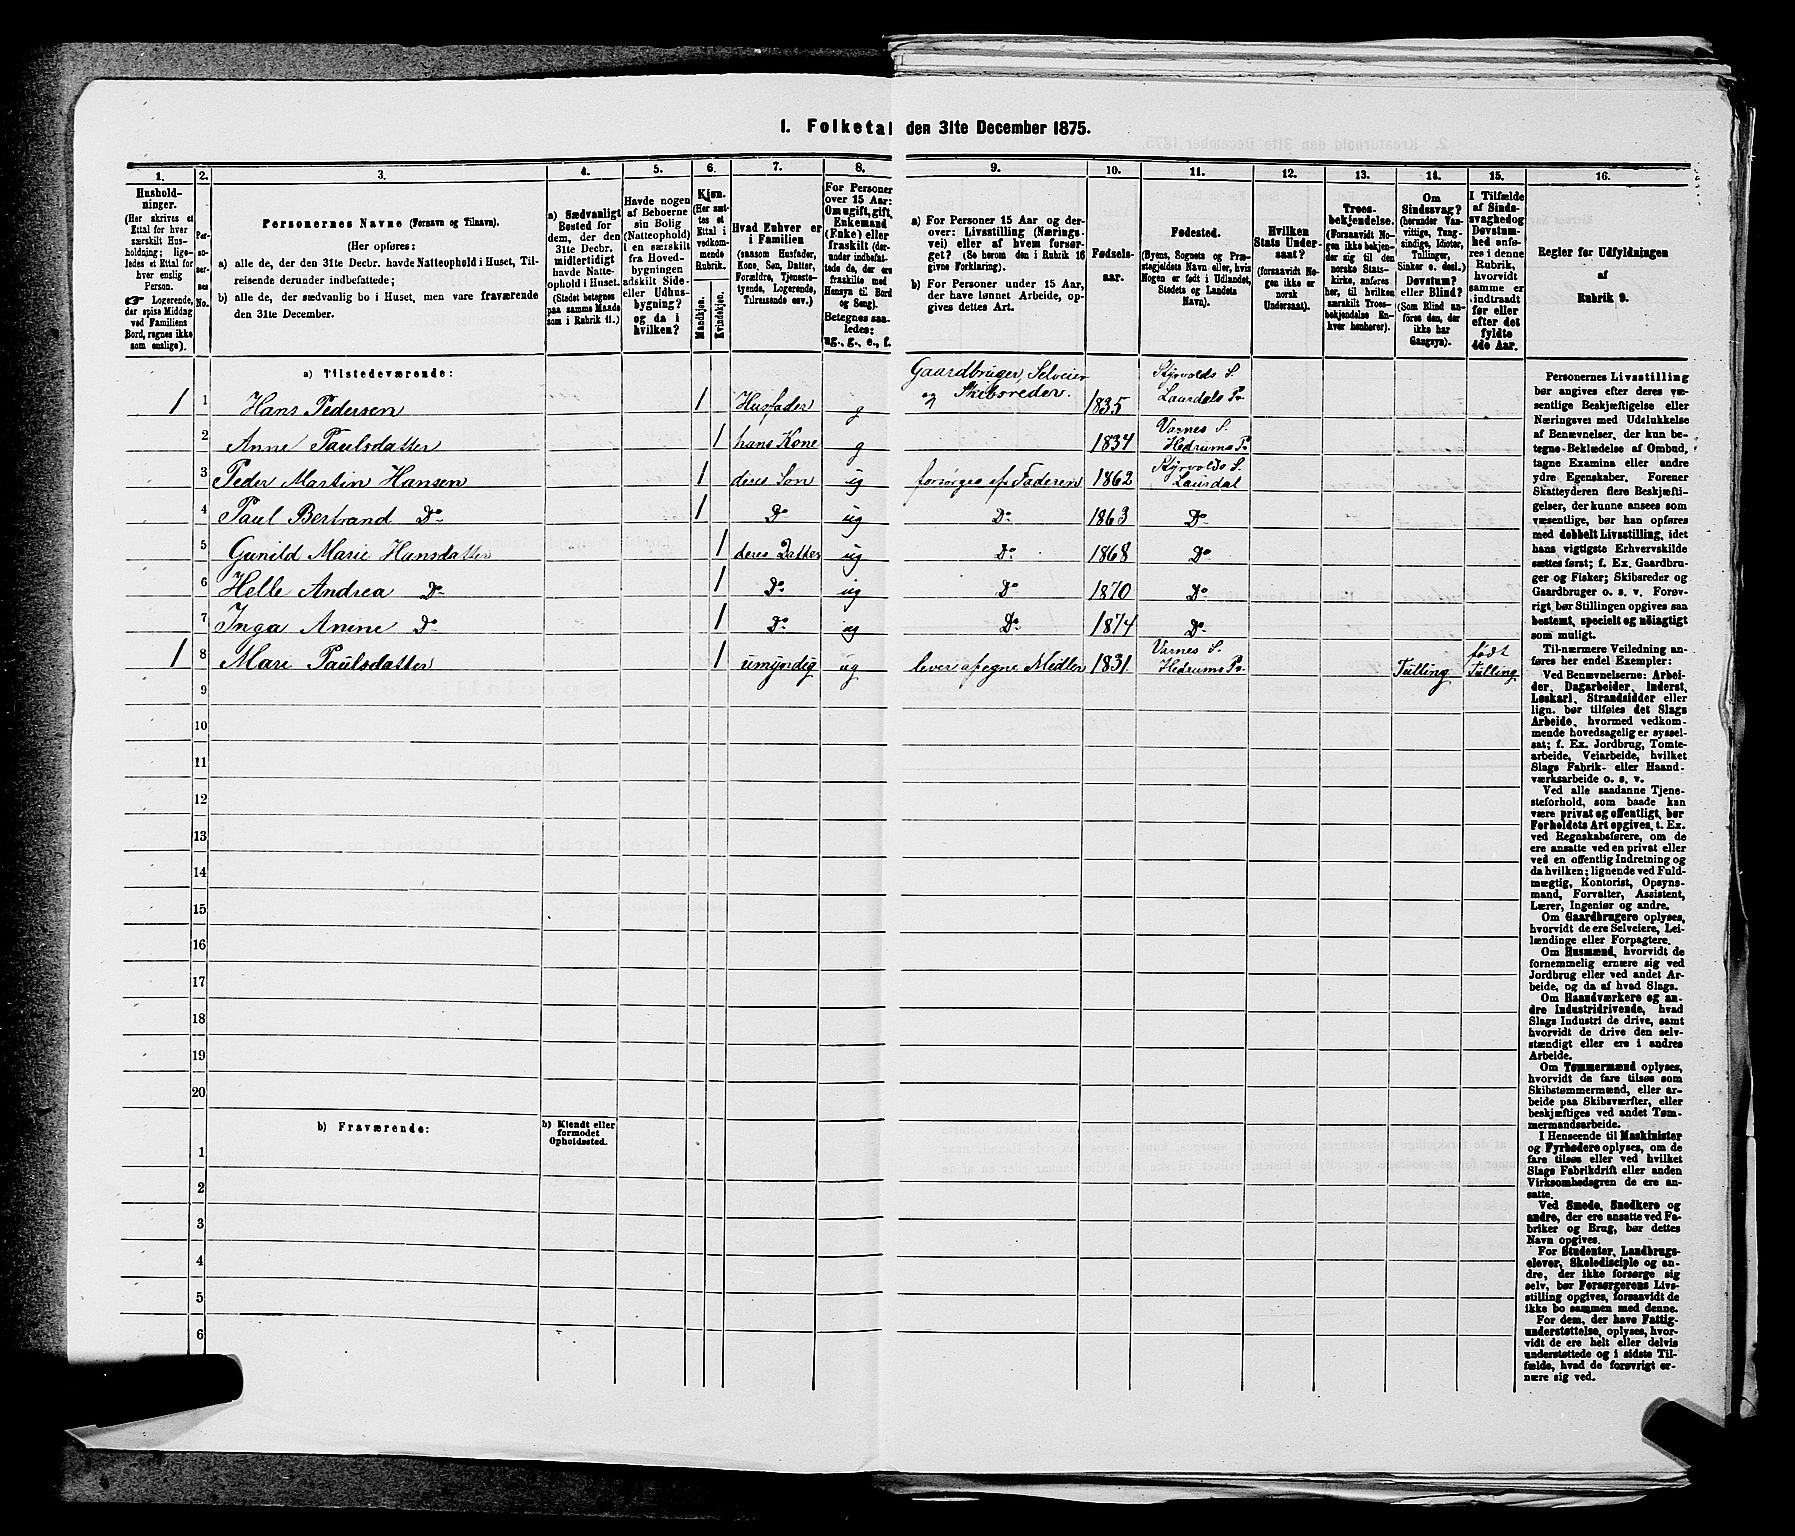 1. Folketal den 31te December 1875.
1. 2. 3. 4. 5. 6. 7. 8. 9. 10. 11. 12. 13. 14. 15. 16.
Hushold-
ninger.
(Her skrives et
Ettal for hver
særskilt Hus-
holdning; lige-
ledes et Ettal for
hver enslig
Person.
☞ Logerende,
der spise Middag
ved Familiens
Bord, regnes ikke
som enslige).
Per-
so-
ner-
nes
No.
Personernes Navne (Fornavn og Tilnavn).
(Her opføres:
a) alle de, der den 31te Decbr. havde Natteophold i Huset, Til-
reisende derunder indbefattede;
b) alle de, der sædvanlig bo i Huset, men vare fraværende
den 31te December.
a) Sædvanligt
Bosted for
dem, der den
31te Decbr.
midlertidigt
havde Natte-
ophold i Huset.
(Stedet betegnes
paa samme Maade
som i Rubrik 11.)
Havde nogen
af Beboerne
sin Bolig
(Natteophold)
i en særskilt
fra Hoved-
bygningen
adskilt Side-
eller Udhus-
bygning?
og da i
hvilken?
Kjøn.
(Her sæt-
tes et
Ettal i
vedkom-
mende
Rubrik.
Mandkjøn.
Kvindekjøn.
Hvad Enhver er
i Familien
(saasom Husfader,
Kone, Søn, Datter,
Forældre, Tjeneste-
tyende, Logerende,
Tilreisende osv.)
For Personer
over 15 Aar:
Om ugift, gift,
Enkemand
(Enke) eller
fraskilt (der-
under indbefat-
tede de, der ere
fraskilte med
Hensyn til Bord
og Seng).
Betegnes saa-
ledes:
ug., g., e., f.
a) For Personer 15 Aar og der-
over: Livsstilling (Nærings-
vei) eller af hvem forsør-
get? (Se herom den i Rubrik 16
givne Forklaring).
b) For Personer under 15 Aar,
der have lønnet Arbeide, op-
gives dettes Art.
Fødsels-
aar.
Fødested.
(Byens, Sognets og Præ-
stegjeldets Navn eller, hvis
Nogen er født i Udlandet,
Stedets og Landets
Navn).
Hvilken
Stats Under-
saat?
(forsaavidt No-
gen ikke er
norsk
Undersaat).
Troes-
bekjendelse.
(Forsaavidt No-
gen ikke bekjen-
der sig til den
norske Stats-
kirke, anføres
her, til hvilken
særskilt Troes-
bekjendelse En-
hver henhører).
Om
Sindssvag?
(herunder Van-
vittige, Tung-
sindige, Idioter,
Tullinger,
Sinker o. desl.)
Døvstum?
eller Blind?
(Som Blind an-
føres den, der
ikke har
Gangsyn).
I Tilfælde
af Sinds-
svaghed og
Døvstum-
hed anfø-
res i denne
Rubrik,
hvorvidt
samme er
indtraadt
før eller
efter det
fyldte
4de Aar.
Regler for Udfyldningen
af
Rubrik 9.
a) Tilstedeværende:
1 1 Hans Pedersen 1 Husfader g Gaardbruger, Selveier og Skibsreder. 1835 Styrvolds S. Laurdals Pr
2 Anne Paulsdatter 1 hans Kone g 1834 Varnes S. Hedrums Pr
3 Peder Martin Hansen 1 deres Søn ug forsørges af Faderen 1862 Styrvolds S. Laurdal
4 Paul Bertrand Do 1 Do ug Do 1863 Do
5 Gunild Marie Hansdatter 1 deres Datter ug Do 1868 Do
6 Helle Andrea Do 1 Do ug Do 1870 Do
7 Inga Anine Do 1 Do ug Do 1874 Do
1 8 Mari Paulsdatter 1 umyndig ug lever af egne Midler 1831. Varnes S. Hedrums Pr Tulling født Tulling
9
10
11
12
13
14
15
16
17
18
19
20
b) Fraværende:
b) Kjendt eller
formodet
Opholdssted.
1
2
3
4
5
6
Personernes Livsstilling
bør angives efter deres væ-
sentlige Beskjæftigelse eller
Næringsvei med Udelukkelse
af Benævnelser, der kun be-
tegne Beklædelse af Ombud,
tagne Examina eller andre
ydre Egenskaber. Forener
Skatteyderen flere Beskjæfti-
gelser, der kunne ansees som
væsentlige, bør han opføres
med dobbelt Livsstilling, idet
hans vigtigste Erhvervskilde
sættes først; f. Ex. Gaardbru-
ger og Fisker; Skibsreder og
Gaardbruger o. s. v. Forøv-
rigt bør Stillingen opgives saa
bestemt, specielt og nøiagtigt
som muligt.
Til nærmere Veiledning an-
føres her endel Exempler:
Ved Benævnelserne: Arbei-
der, Dagarbeider, Inderst,
Løskarl, Strandsidder eller
lign. bør tilføies det Slags
Arbeide, hvormed vedkom-
mende hovedsagelig er syssel-
sat; f. Ex. Jordbrug, Tomte-
arbeide, Veiarbeide, hvilket
Slags Fabrik- eller Haand-
værksarbeide o. s. v.
Ved alle saadanne Tjene-
steforhold, som baade kan
være privat og offentligt, bør
Forholdets Art opgives, t. Ex.
ved Regnskabsførere, om de
ere ansatte ved en privat eller
ved en offentlig Indretning og
da hvilken; lignende ved Fuld-
mægtig, Kontorist, Opsyns-
mand, Forvalter, Assistent,
Lærer, Ingeniør og andre.
Om Gaardbrugere oplyses,
hvorvidt de ere Selveiere, Lei-
lændinge eller Forpagtere.
Om Husmænd, hvorvidt de
fornemmelig ernære sig ved
Jordbrug eller ved andet Ar-
beide, og da af hvad Slags.
Om Haandværkere og an-
dre Industridrivende, hvad
Slags Industri de drive, samt
hvorvidt de drive den selv-
stændigt eller ere i andres
Arbeide.
Om Tømmermænd oplyses,
hvorvidt de fare tilsøs som
Skibstømmermænd, eller ar-
beide paa Skibsværfter, eller
beskjæftiges ved andet Tøm-
mermandsarbeide.
I Henseende til Maskinister
og Fyrbødere oplyses, om de
fare tilsøs eller ved hvilket
Slags Fabrikdrift eller anden
Virksomhedsgren de ere an-
satte.
Ved Smede, Snedkere og
andre, der ere ansatte ved Fa-
briker og Brug, bør dettes
Navn opgives.
For Studenter, Landbrugs-
elever, Skoledisciple og an-
dre, der ikke forsørge sig
selv, bør Forsørgerens Livs-
stilling opgives, forsaavidt de
ikke bo sammen med denne.
For dem, der have Fattig-
understøttelse, oplyses, hvor-
vidt de ere helt eller delvis
understøttede og i sidste Til-
fælde, hvad de forøvrigt er-
nære sig ved.